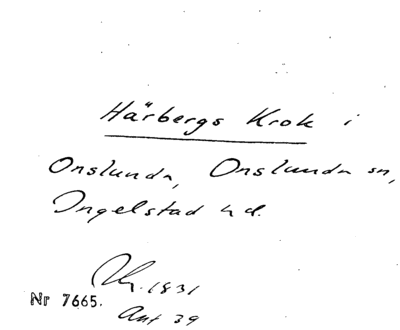 Härbergs Krok i
Onslunda, Onslunda sn,
Ingelstad hd.
1831
Nr 7665.
Ant 39